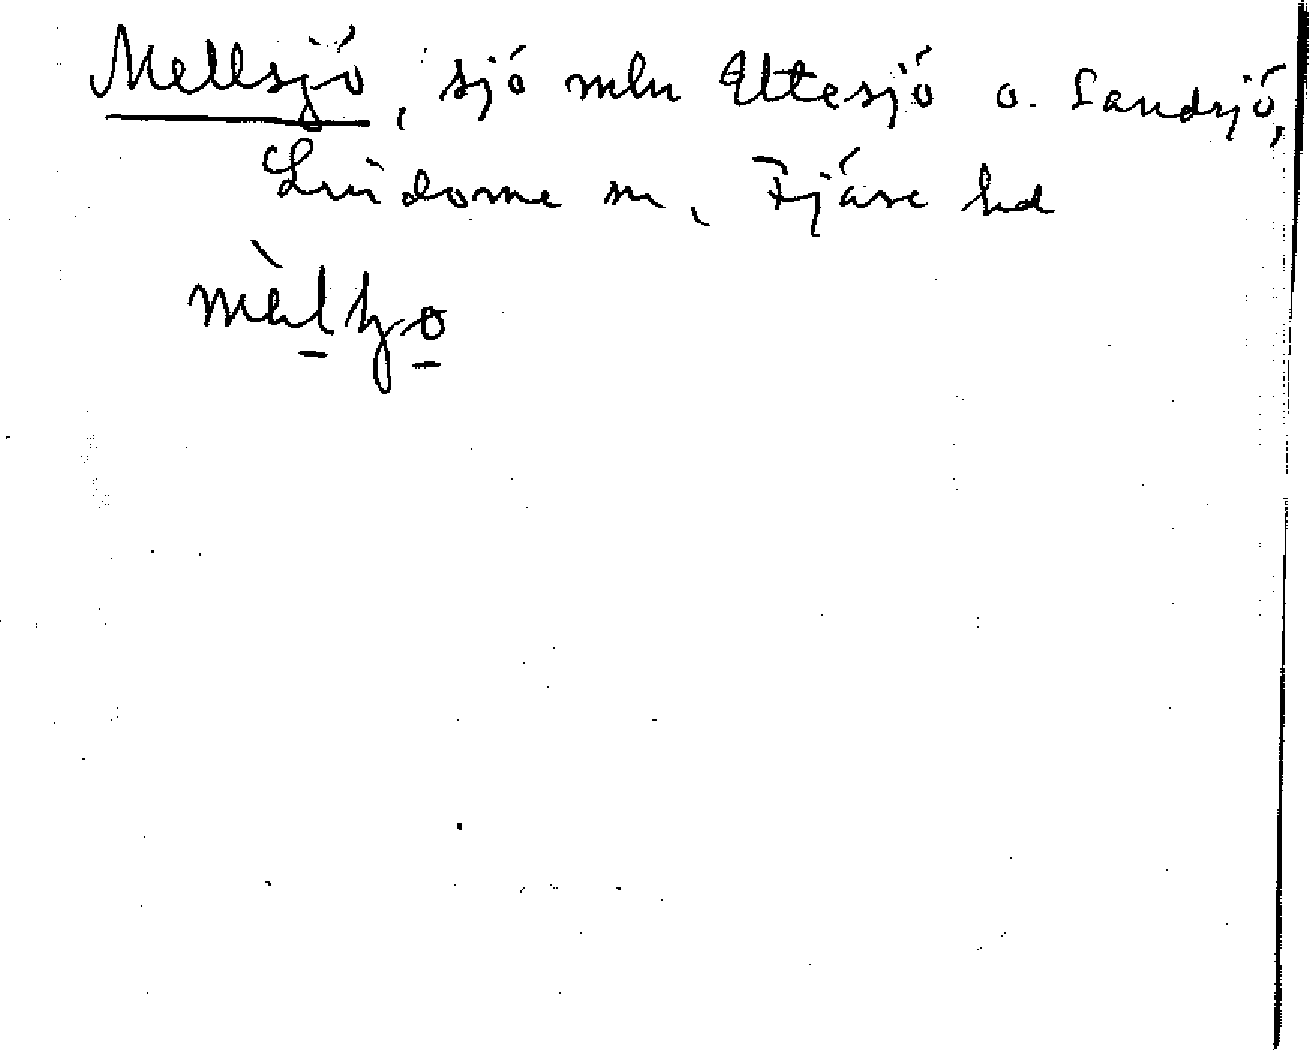 Mellsjö, sjö mln Uttesjö o. Sandsjö,
Lindome sn, Fjäre hd